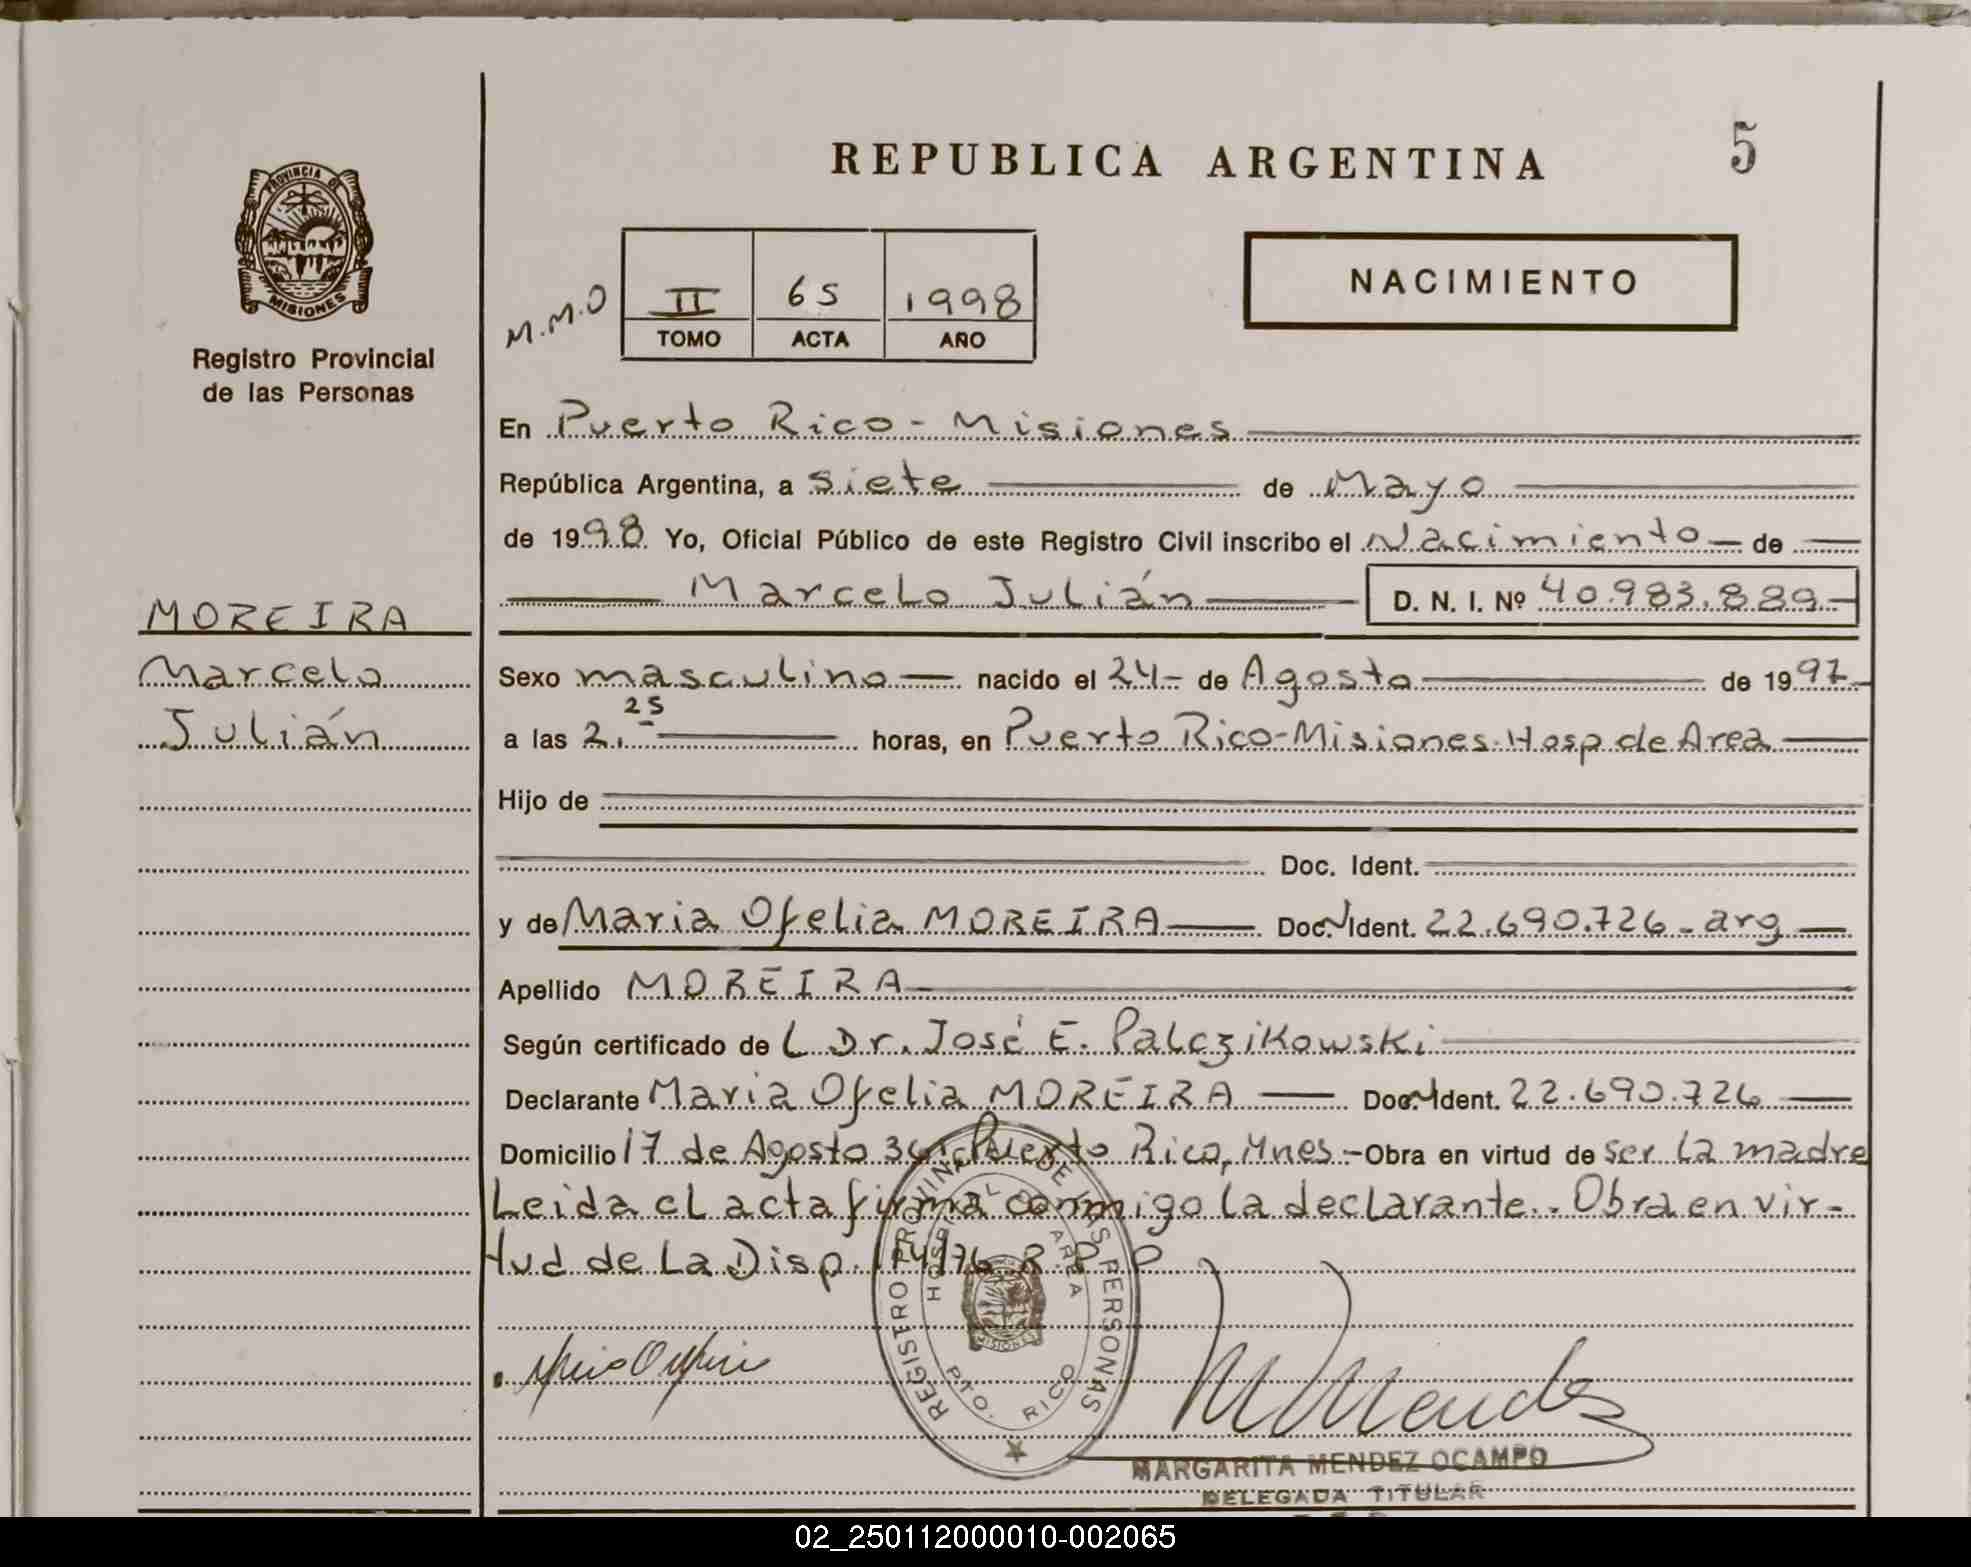 REPUBLICA ARGENTINA
5
PROVINCIA DE
MISIONES
Registro Provincial
de las Personas
M.M.O
II 65 1998
TOMO ACTA AÑO
NACIMIENTO
En Puerto Rico - Misiones
República Argentina, a siete de Mayo
de 1998 Yo, Oficial Público de este Registro Civil inscribo el Nacimiento de
Marcelo Julián D. N. I. Nº 40.983.889
MOREIRA
Marcelo
Julián
Sexo masculino nacido el 24 de Agosto de 1997
a las 2.25 horas, en Puerto Rico-Misiones. Hosp de Area
Hijo de
Doc. Ident.
y de Maria Ofelia MOREIRA Doc. Ident. 22.690.726 - arg
Apellido MOREIRA
Según certificado de L Dr. José E. Palczikowski
Declarante Maria Ofelia MOREIRA Doc. Ident. 22.690.726
Domicilio 17 de Agosto Puerto Rico, Mnes - Obra en virtud de ser la madre
Leida el acta firma conmigo la declarante.. Obra en vir-
tud de La Disp. 114/76 R. P. P
REGISTRO PROVINCIAL DE LAS PERSONAS
HOSPITAL DE AREA
MISIONES
PTO. RICO
M Mendez
MARGARITA MENDEZ OCAMPO
DELEGADA TITULAR
02_250112000010-002065